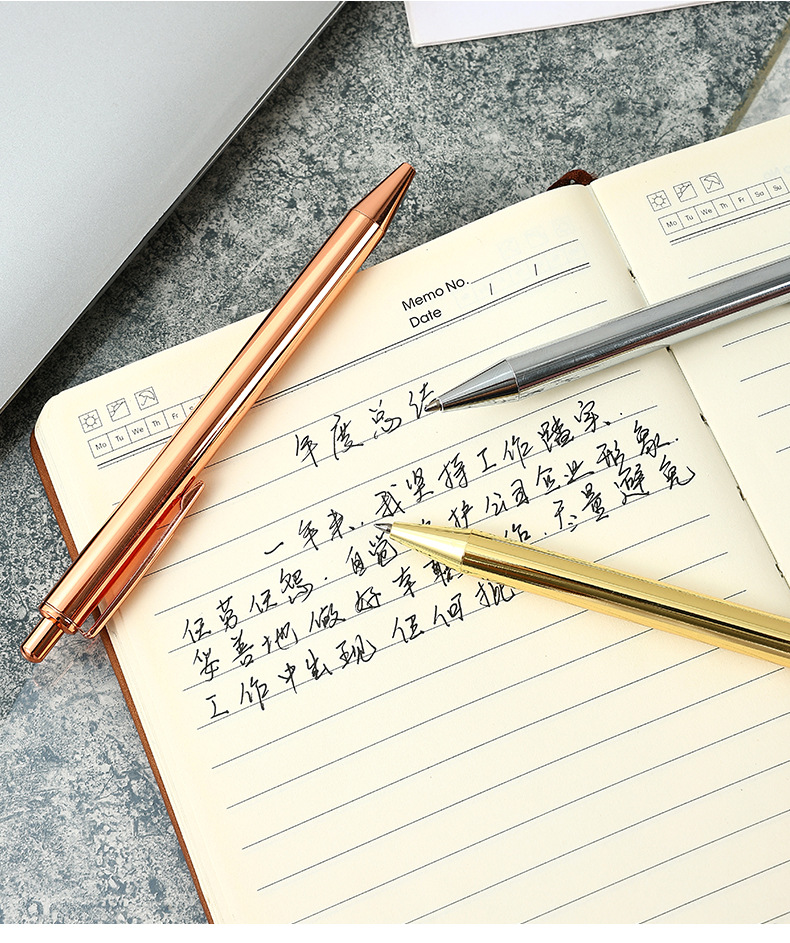 Memo No.
Date / /
Mo Tu We Th Fr
年度总结
一年来,我坚持工作踏实、
任劳任怨.自觉 护公司企业形象.
妥善地做好本职 作.尽量避免
工作中出现任何
Mo Tu We Th Fr Sa Su